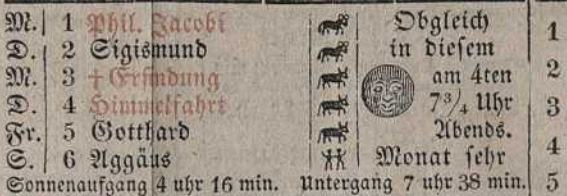 M. 1 Phil. Jacobi Obgleich 1
D. 2 Sigismund in diesem
M. 3 † Erfindung am 4ten 2
D. 4 Himmelfahrt 7 3/4 Uhr 3
Fr. 5 Gotthard Abends.
S. 6 Aggäus Monat sehr 4
Sonnenaufgang 4 uhr 16 min. Untergang 7 uhr 38 min. 5